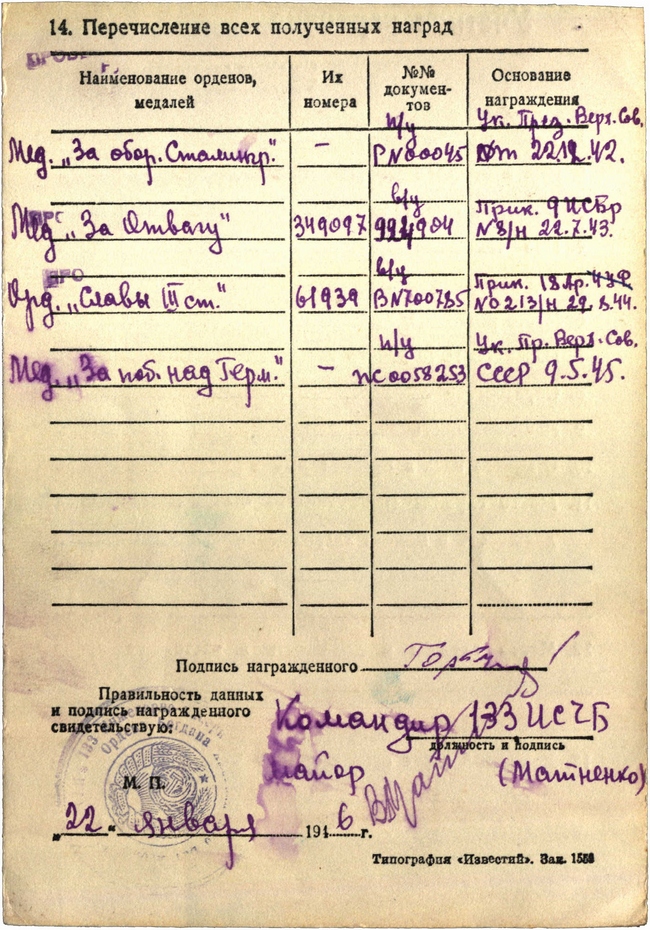 14. Перечисление всех полученных наград
Наименование орденов, медалей
Их номера
№№ документов
Основание награждения
п/у Ук. През. Верх. Сов.
Мед. „За обор. Сталингр." – РN00045 от 22.12.42.
в/у Прик. 9 ИСБр
Мед „За Отвагу" 349097 924904 N 8/Н 22.7.43.
в/у Прик. 18 Ар.
Орд. „Славы III ст." 61939 ВN700785 No 213/Н 29.8.44.
п/у Ук. Пр. Верх. Сов.
Мед. „За поб. над Герм." – ПС0058253 СССР 9.5.45.
Подпись награжденного
Правильность данных
и подпись награжденного
свидетельствую:
Командир 133 ИСЧБ
должность и подпись
майор (Матненко)
М. П.
„22" января 1946 г.
Типография «Известий». Зак. 1558